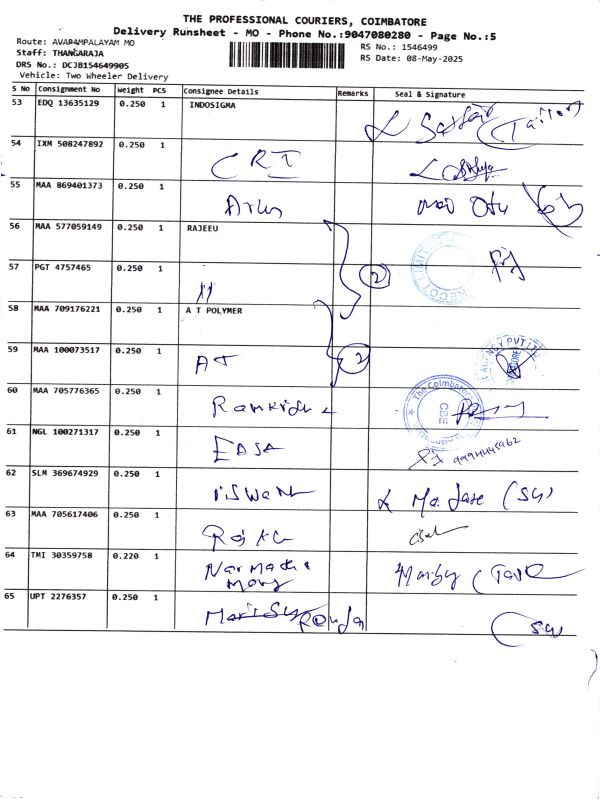 THE PROFESSIONAL COURIERS, COIMBATORE
Delivery Runsheet - MO - Phone No.:9047080280 - Page No.:5
Route: AVARAMPALAYAM MO
RS No.: 1546499
Staff: THANGARAJA
RS Date: 08-May-2025
DRS No.: DCJB154649905
Vehicle: Two Wheeler Delivery
S No Consignment No Weight PCS Consignee Details Remarks Seal & Signature
53 EDQ 13635129 0.250 1 INDOSIGMA
(Tailor)
54 IXM 508247892 0.250 1 CRI
55 MAA 869401373 0.250 1
56 MAA 577059149 0.250 1 RAJEEU
57 PGT 4757465 0.250 1 11 2
58 MAA 709176221 0.250 1 A T POLYMER
59 MAA 100073517 0.250 1 AT 2
AGENCY PVT LTD
60 MAA 705776365 0.250 1
The Coimbatore
CBE
61 NGL 100271317 0.250 1
9994445962
62 SLM 369674929 0.250 1
63 MAA 705617406 0.250 1
64 TMI 30359758 0.220 1 Narmadha
65 UPT 2276357 0.250 1